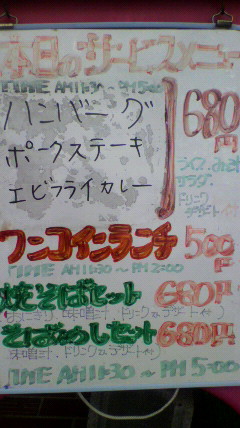 本日のサービスメニュー
TIME AM11:30 〜 PM5:00
ハンバーグ
ポークステーキ
エビフライカレー
680円
ライス、みそ汁
サラダ、
ドリンク
デザート付
ワンコインランチ 500円
TIME AM11:30 〜 PM2:00
焼そばセット 680円
味噌汁、ドリンク&デザート付)
そばめしセット 680円
(味噌汁、ドリンク&デザート付)
TIME AM11:30 〜 PM5:00